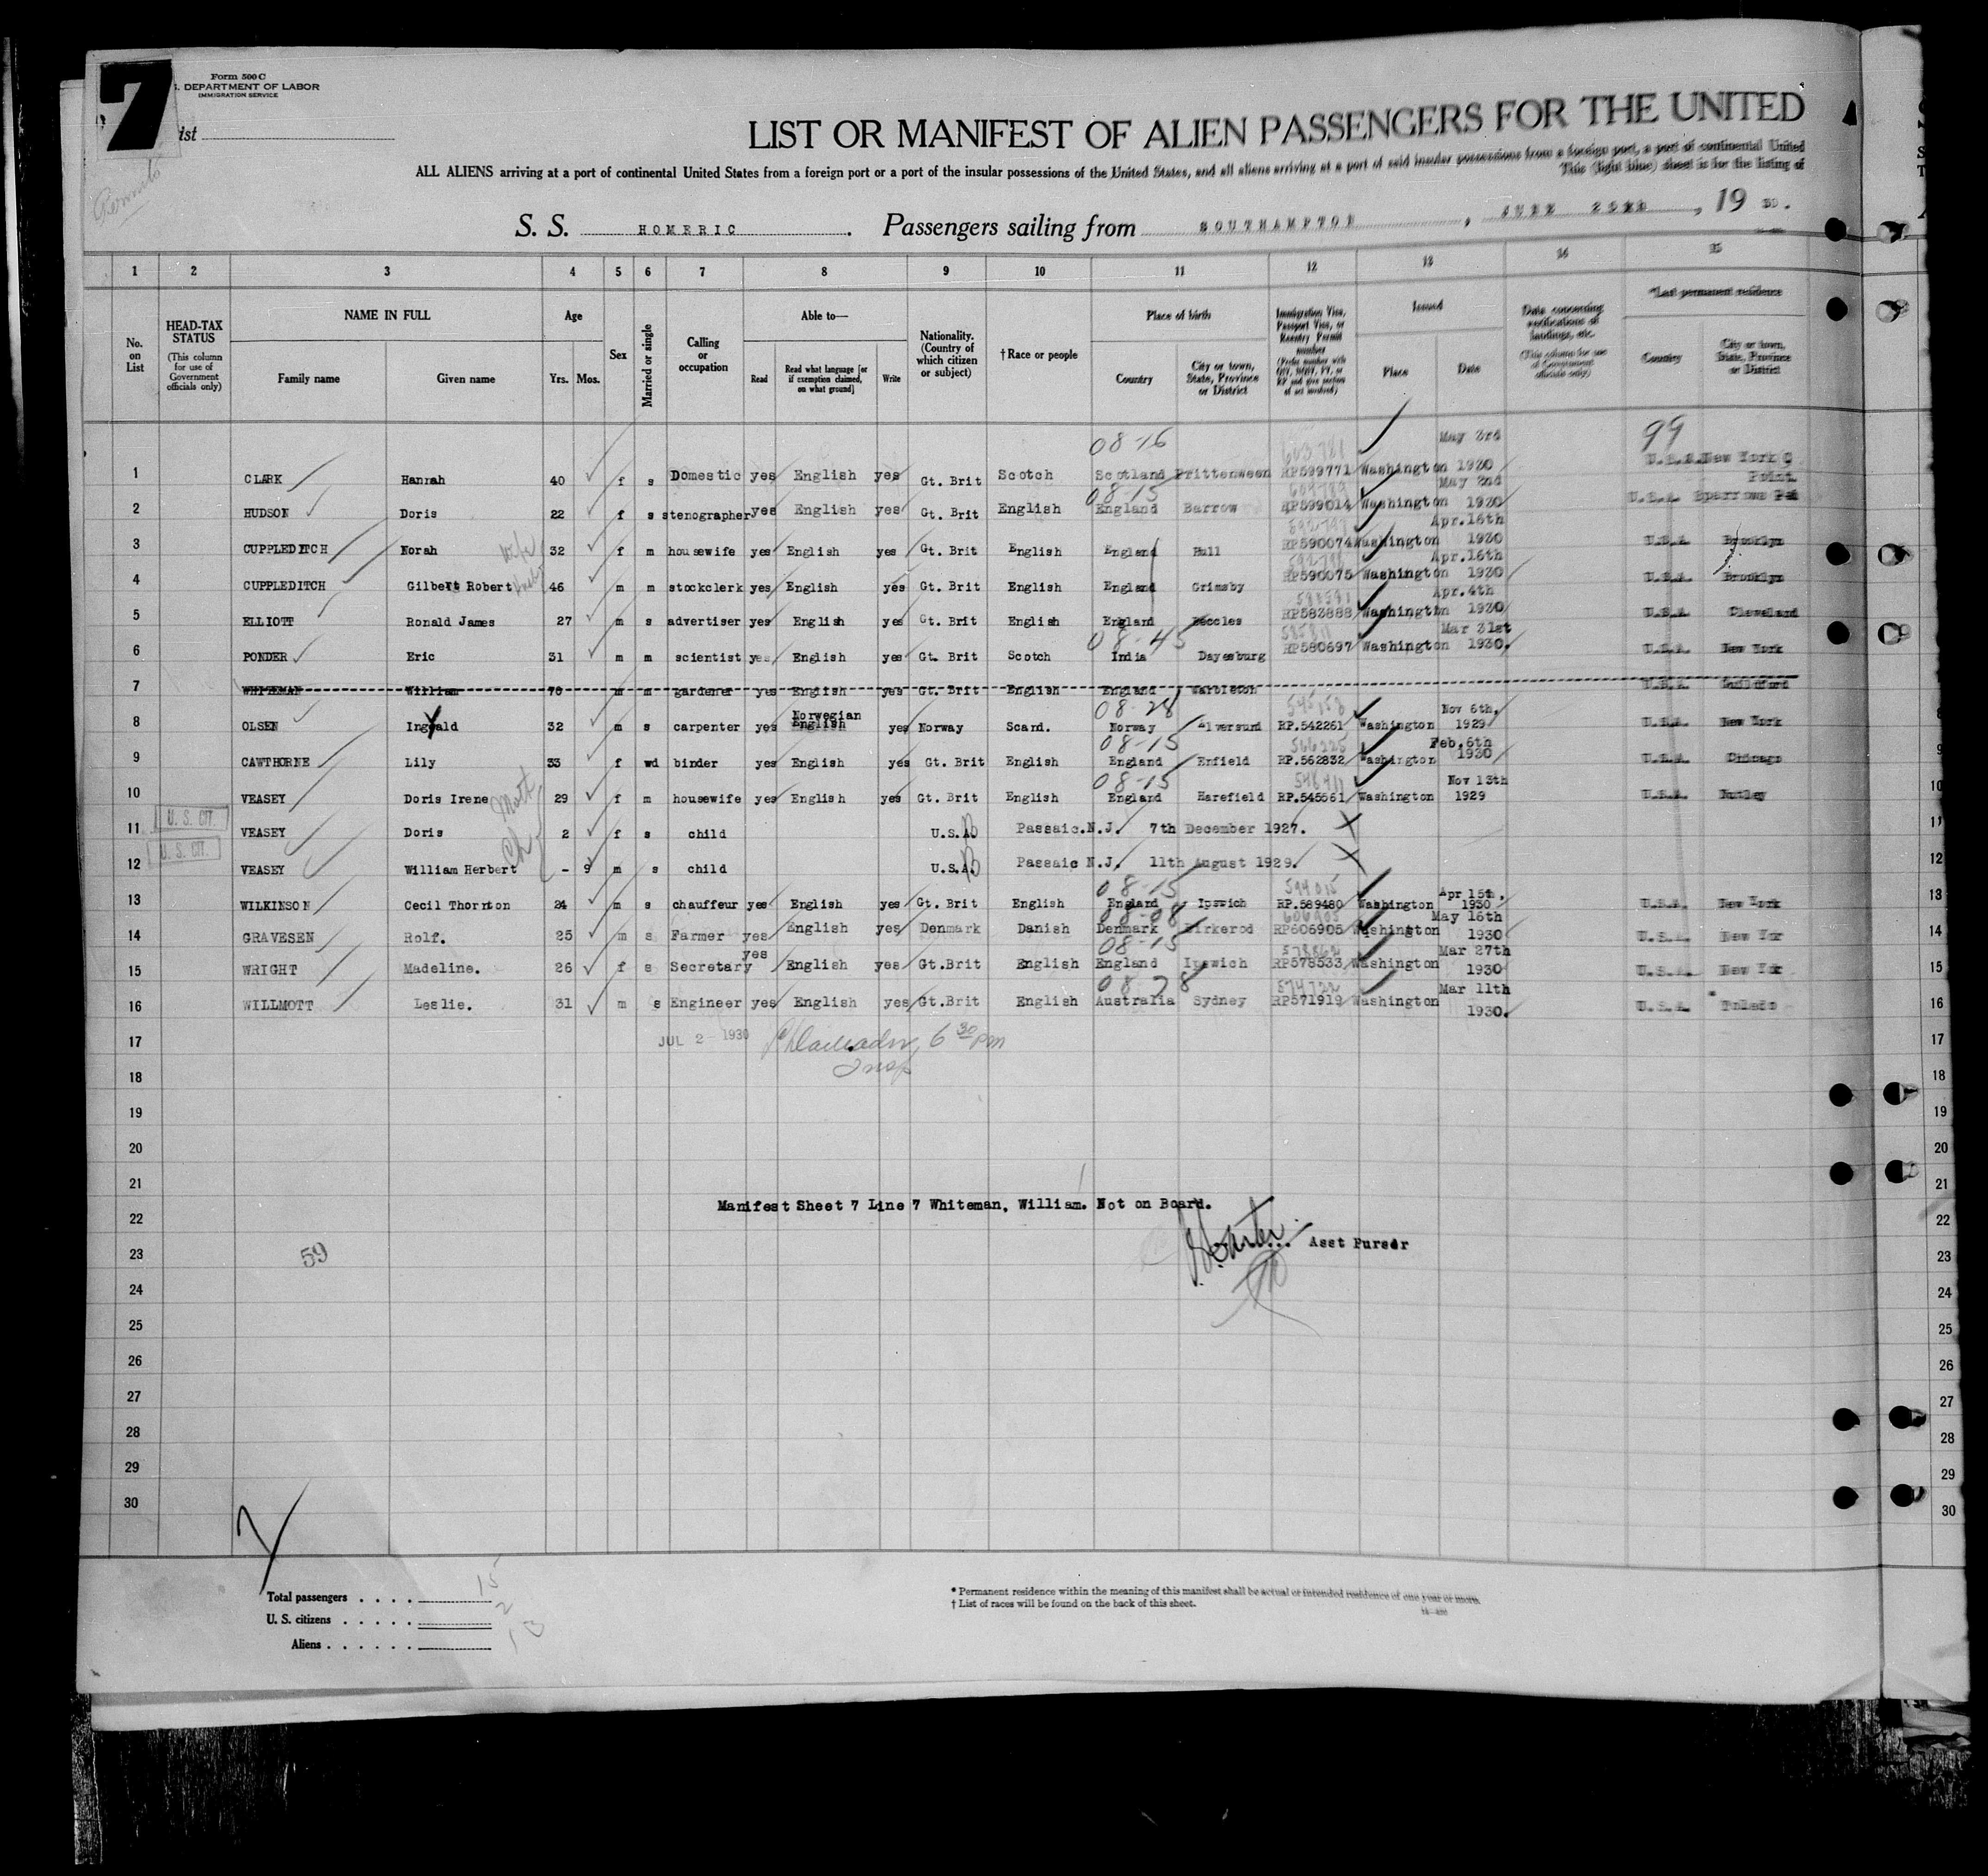 7
Form 500 C
DEPARTMENT OF LABOR
IMMIGRATION SERVICE
ist
LIST OR MANIFEST OF ALIEN PASSENGERS FOR THE UNITED
ALL ALIENS arriving at a port of continental United States from a foreign port or a port of the insular possessions of the United States, and all aliens arriving at a port of said insular possessions from a foreign port, a port of continental United
This (light blue) sheet is for the listing of
S. S. HOMERIC. Passengers sailing from SOUTHAMPTON, JUNE 25th, 19 30.
1 2 3 4 5 6 7 8 9 10 11 12 13 14 15
No. on List
HEAD-TAX STATUS (This column for use of Government officials only)
NAME IN FULL Family name Given name
Age Yrs. Mos.
Sex
Married or single
Calling or occupation
Able to— Read Read what language [or if exemption claimed, on what ground] Write
Nationality. (Country of which citizen or subject)
†Race or people
Place of birth Country City or town, State, Province or District
Immigration Visa, Passport Visa, or Reentry Permit number
Issued Place Date
Data concerning verifications of landings, etc. (This column for use of Government officials only)
*Last permanent residence Country City or town, State, Province or District
08-16 603781 May 3rd 99
1 CLARK Hannah 40 f s Domestic yes English yes Gt. Brit Scotch Scotland Prittenween RP599771 Washington 1930 U.S.A. New York C
08-15 May 2nd Point
2 HUDSON Doris 22 f s stenographer yes English yes Gt. Brit English England Barrow RP599014 Washington 1930 U.S.A. Sparrows
Wife Apr.16th
3 CUPPLEDITCH Norah 32 f m housewife yes English yes Gt. Brit English England Hull RP590074 Washington 1930 U.S.A. Brooklyn
Apr.16th
4 CUPPLEDITCH Gilbert Robert 46 m m stockclerk yes English yes Gt. Brit English England Grimsby RP590075 Washington 1930 U.S.A. Brooklyn
Apr.4th
5 ELLIOTT Ronald James 27 m s advertiser yes English yes Gt. Brit English England Beccles RP583888 Washington 1930 U.S.A. Cleveland
08-45 Mar 31st
6 PONDER Eric 31 m m scientist yes English yes Gt. Brit Scotch India Dayesburg RP580697 Washington 1930. U.S.A. New York
7 WHITEMAN William 70 m m gardener yes English yes Gt. Brit English England Warbleton U.S.A. Guildford
08-28 545158 Nov 6th,
8 OLSEN Ingvald 32 m s carpenter yes Norwegian English yes Norway Scand. Norway Alversund RP.542261 Washington 1929 U.S.A. New York 8
08-15 566225 Feb.6th
9 CAWTHORNE Lily 33 f wd binder yes English yes Gt. Brit English England Enfield RP.562832 Washington 1930 U.S.A. Chicago 9
Moth 08-15 548411 Nov 13th
10 VEASEY Doris Irene 29 f m housewife yes English yes Gt. Brit English England Harefield RP.545661 Washington 1929 U.S.A. Nutley 10
U. S. CIT.
11 VEASEY Doris 2 f s child U.S.A. Passaic.N.J. 7th December 1927. 11
U. S. CIT. Ch
12 VEASEY William Herbert - 9 m s child U.S.A. Passaic N.J. 11th August 1929. 12
08-15 594015 Apr 15th,
13 WILKINSON Cecil Thornton 24 m s chauffeur yes English yes Gt. Brit English England Ipswich RP.589480 Washington 1930 U.S.A. New York 13
08-08 606905 May 16th
14 GRAVESEN Rolf. 25 m s Farmer yes English yes Denmark Danish Denmark Birkerod RP606905 Washington 1930 U.S.A. New Yor 14
08-15 578862 Mar 27th
15 WRIGHT Madeline. 26 f s Secretary yes English yes Gt.Brit English England Ipswich RP578533 Washington 1930 U.S.A. New Yor 15
08 78 574722 Mar 11th
16 WILLMOTT Leslie. 31 m s Engineer yes English yes Gt.Brit English Australia Sydney RP571919 Washington 1930. U.S.A. Toledo 16
17 JUL 2 - 1930 6 30 pm 17
Insp
18 18
19 19
20 20
21 21
Manifest Sheet 7 Line 7 Whiteman, William. Not on Board.
22 22
23 59 Asst Purser 23
24 24
25 25
26 26
27 27
28 28
29 29
30 30
Total passengers . . . . 15
U. S. citizens . . . . . 2
Aliens . . . . . . 13
* Permanent residence within the meaning of this manifest shall be actual or intended residence of one year or more.
† List of races will be found on the back of this sheet.